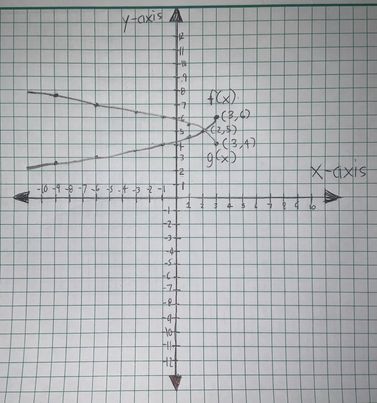 y-axis
12
11
10
9
8
7
6
5
4
3
2
1
f(x)
(3,6)
(2,5)
(3,4)
g(x)
x-axis
-10 -9 -8 -7 -6 -5 -4 -3 -2 -1
1 2 3 4 5 6 7 8 9 10
-1
-2
-3
-4
-5
-6
-7
-8
-9
-10
-11
-12